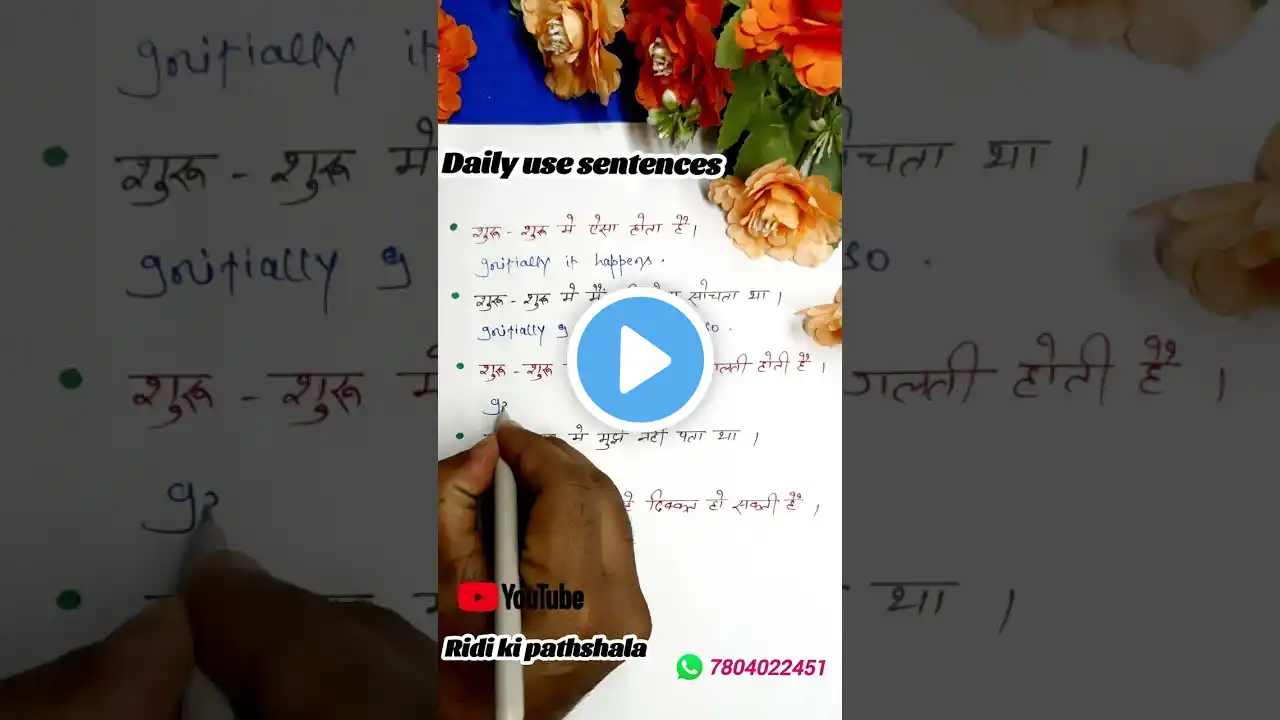 Daily use sentences
शुरू - शुरू मे ऐसा होता है।
Initially it happens.
शुरू - शुरू मे मैं सोचता था।
Initially I so.
शुरू - शुरू गलती होती है।
मे मुझे नहीं पता था।
दिक्कत हो सकती है।
YouTube
Ridi ki pathshala
7804022451